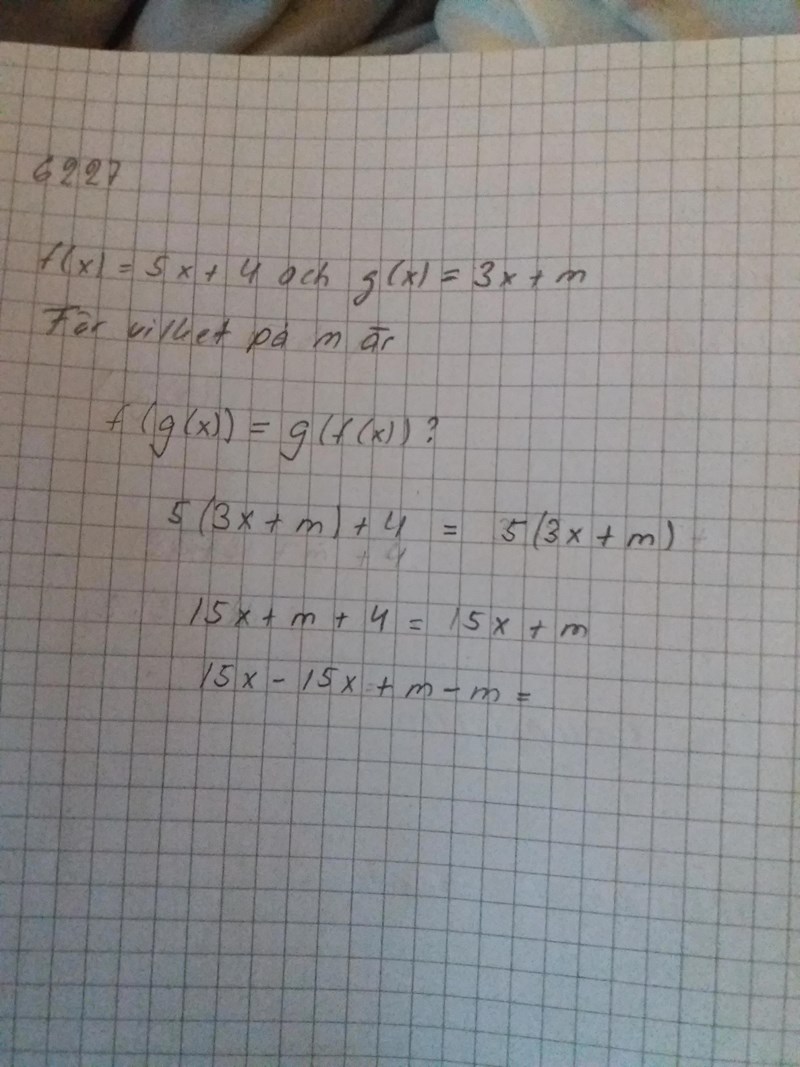 6227
f(x) = 5x + 4 och g(x) = 3x + m
För vilket på m är
f(g(x)) = g(f(x))?
5(3x + m) + 4 = 5(3x + m)
+ 4
15x + m + 4 = 15x + m
15x - 15x + m - m =